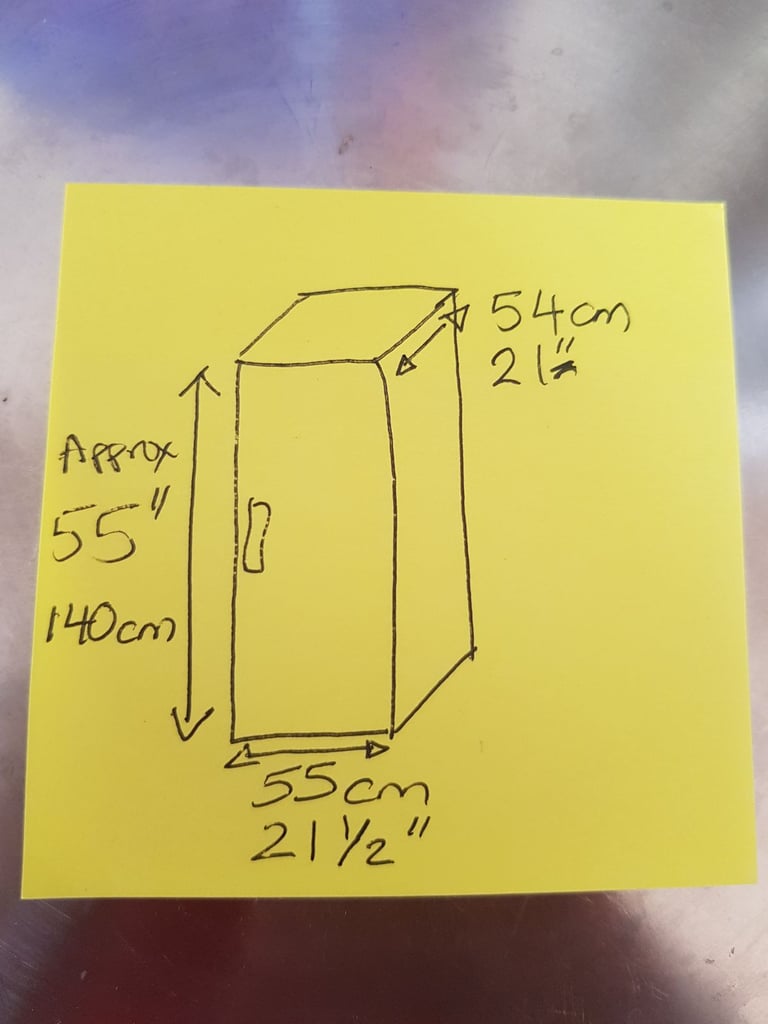 54cm
21"
Approx
55"
140cm
55cm
21 1/2"